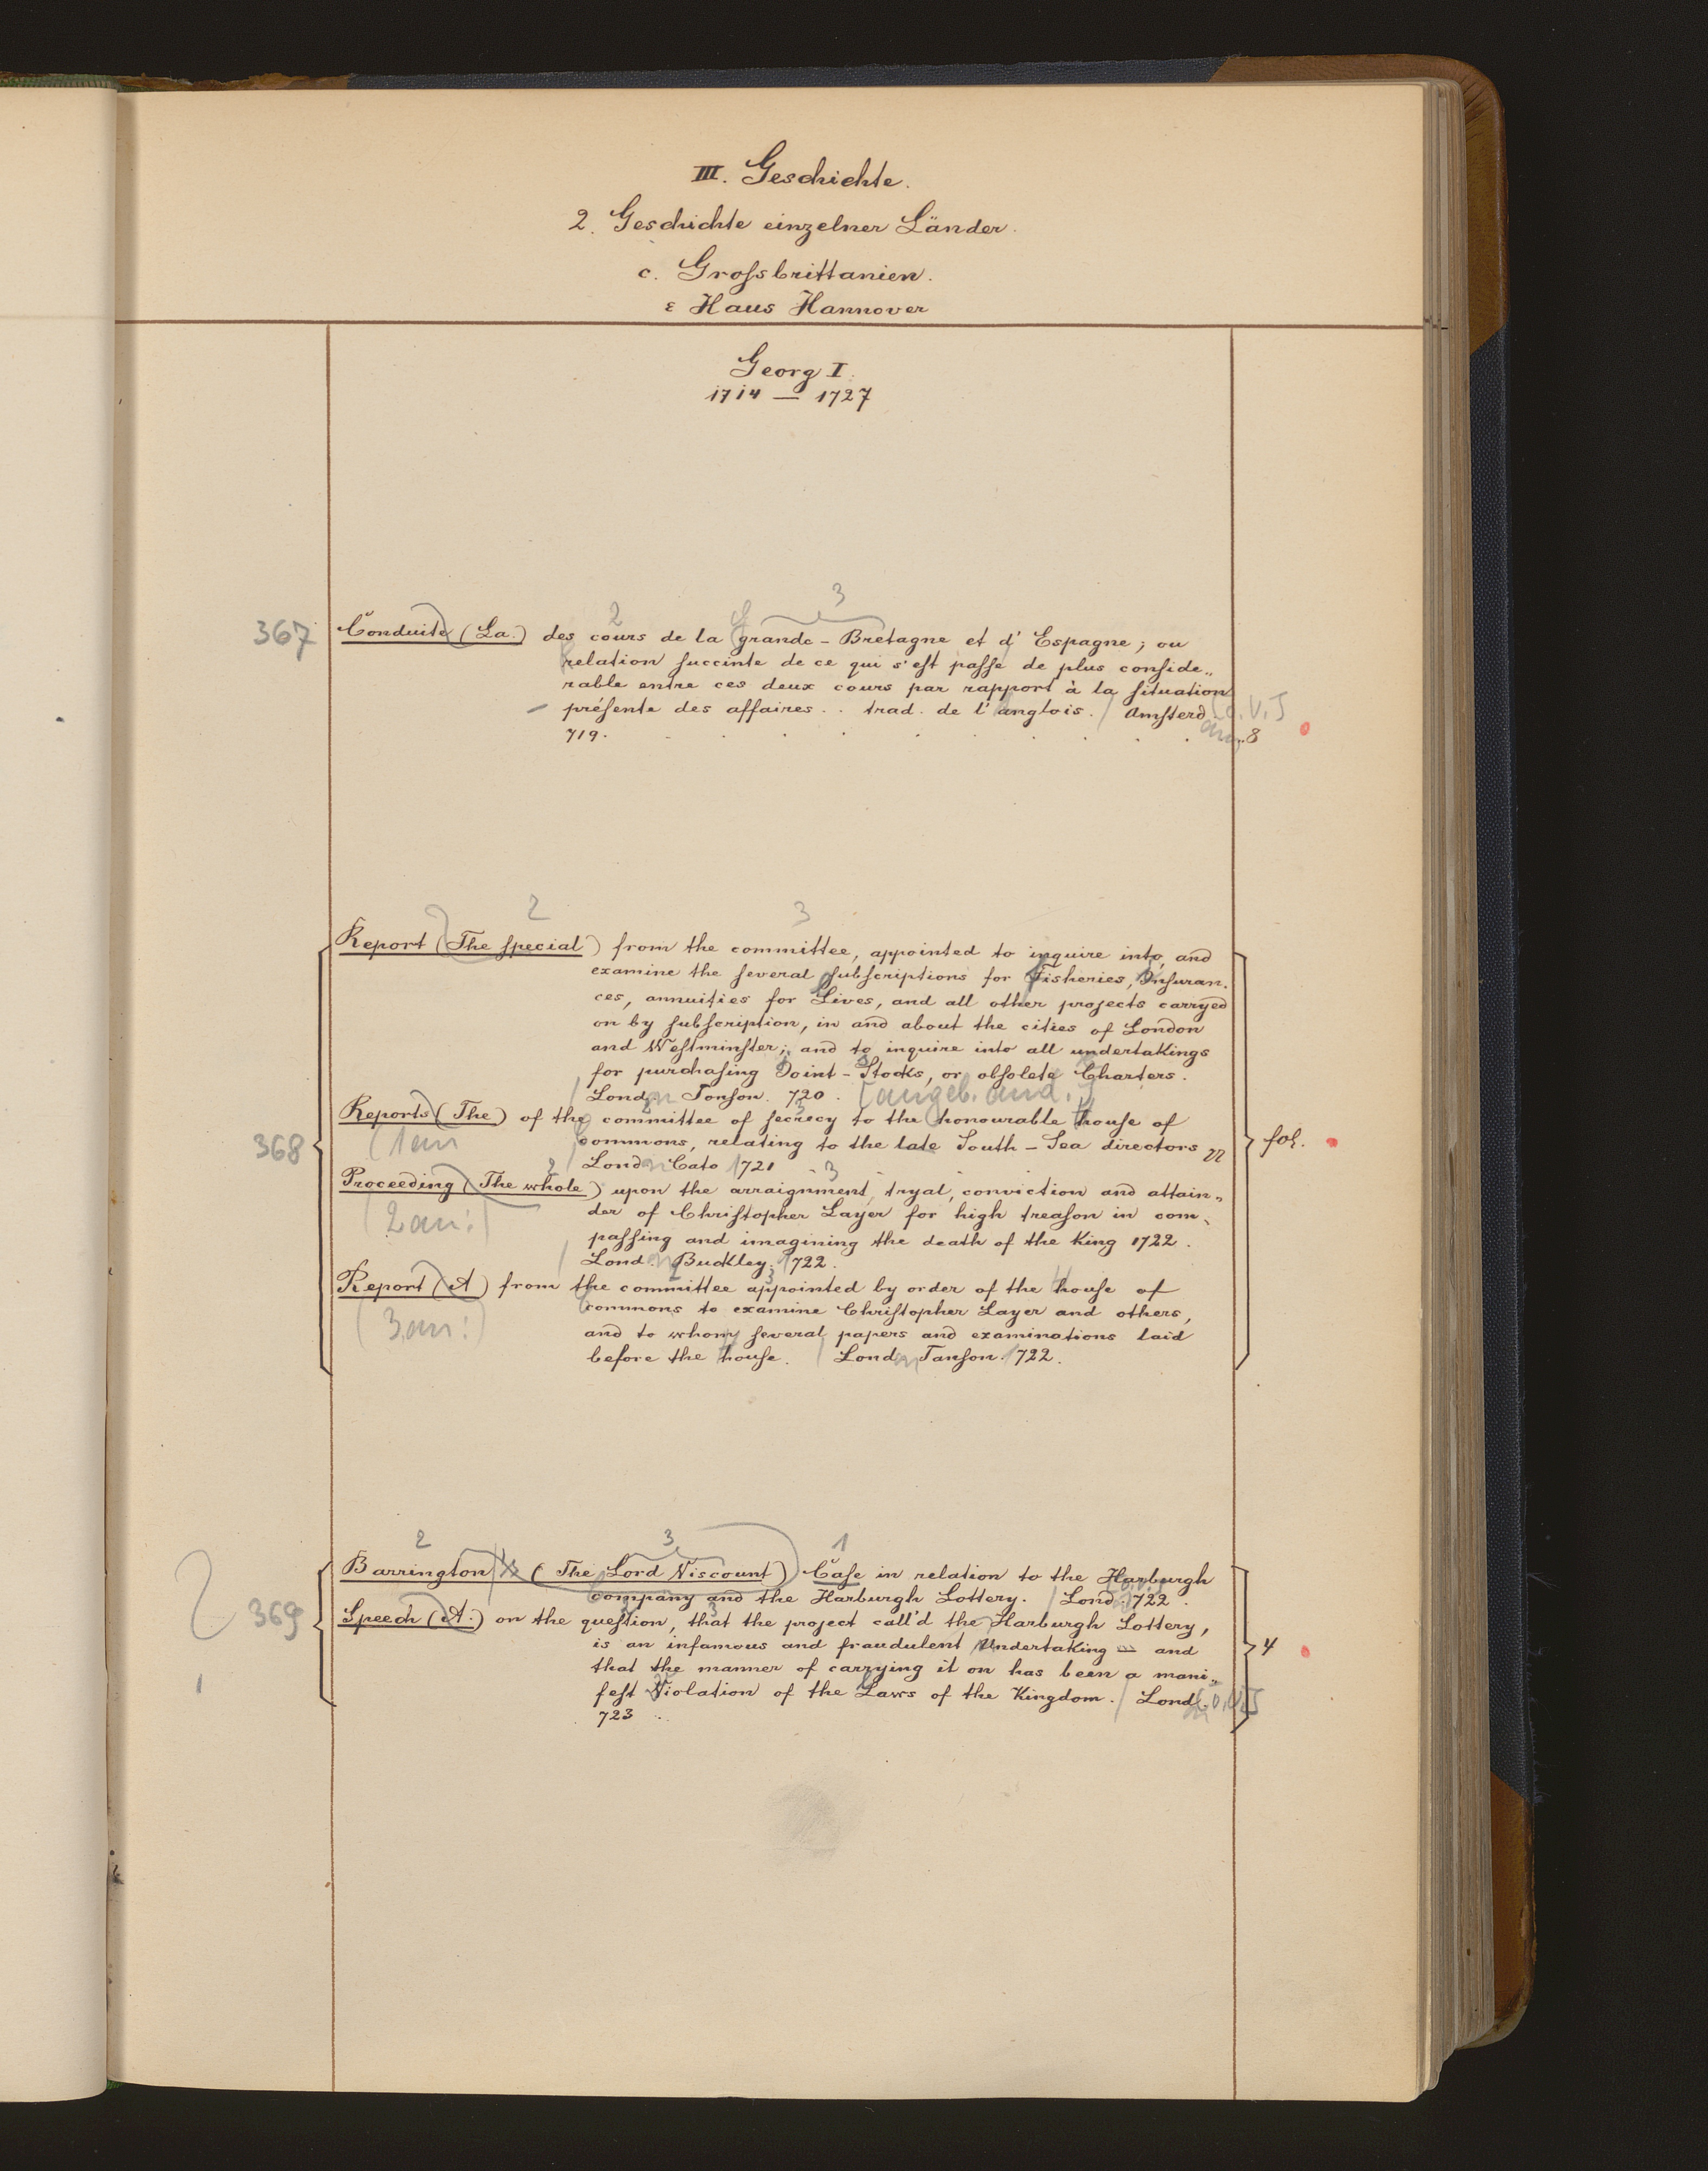 III. Geschichte.
2. Geschichte einzelner Länder.
c. Grossbrittanien.
ε Haus Hannover
Georg I.
1714 — 1727
2 3
367 Conduite (La.) des cours de la grande-Bretagne et d'Espagne; ou
relation succinte de ce qui s'est passe de plus conside„
rable entre ces deux cours par rapport à la situation
présente des affaires . . trad. de l'anglois. Amsterd
719. 8
2 3
Report (The special) from the committee, appointed to inquire into, and
examine the several subscriptions for Fisheries, Insuran.
ces, annuities for Lives, and all other projects carryed
on by subscription, in and about the cities of London
and Westminster; and to inquire into all undertakings
for purchasing Joint-Stocks, or obsolete Charters.
Lond Tonson. 720. [angeb. and.]
Reports (The) of the committee of secrecy to the honourable house of
368 (1an commons, relating to the late South-Sea directors fol.
Lond Cato 1721
Proceeding (The whole) upon the arraignment, tryal, conviction and attain„
(2 an:) der of Christopher Layer for high treason in com„
passing and imagining the death of the King 1722.
Lond. Buckley. 1722.
Report (A) from the committee appointed by order of the house of
(3. an:) commons to examine Christopher Layer and others,
and to whom several papers and examinations laid
before the house. Lond Tanson. 1722.
2 3 1
Barrington (The Lord Viscount) Case in relation to the Harburgh
company and the Harburgh Lottery. Lond. 1722.
369 Speech (A.) on the question, that the project call'd the Harburgh Lottery,
is an infamous and fraudulent Undertaking — and 4
that the manner of carrying it on has been a mani„
fest Violation of the Laws of the Kingdom. Lond.
723